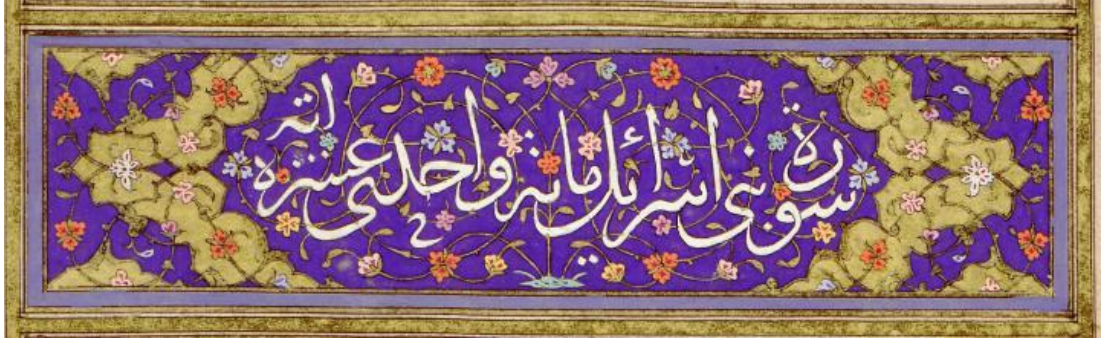 سورة بنی اسرائیل مائة واحدی عشره ایة